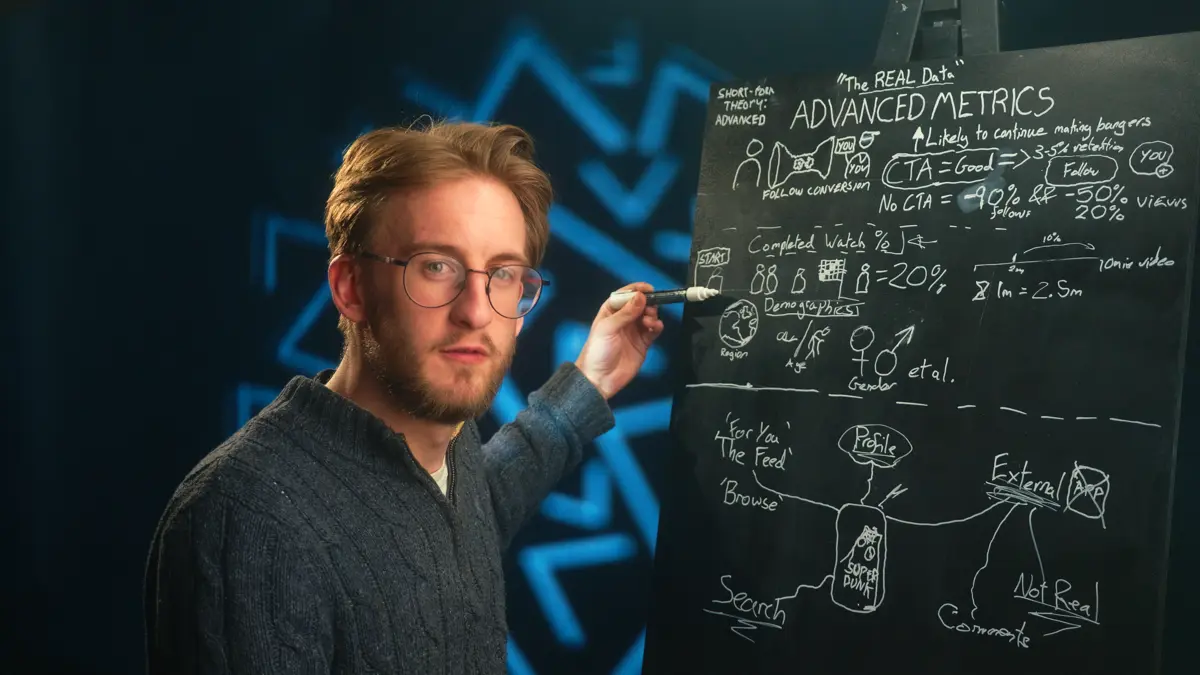 "The REAL Data"
SHORT-FORM
THEORY:
ADVANCED
ADVANCED METRICS
Likely to continue making bangers
YOU
YOU
FOLLOW CONVERSION
CTA = Good => 3-5% retention
Follow
YOU
No CTA = -90% && -50% views
follows
20%
Completed Watch %
START
= 20%
10%
2m
10min video
1m = 2.5m
Demographics
Region
Age
Gender
et al.
'For You'
'The Feed'
'Browse'
Profile
External
APP
SUPER
DUNK
Search
Comments
Not Real